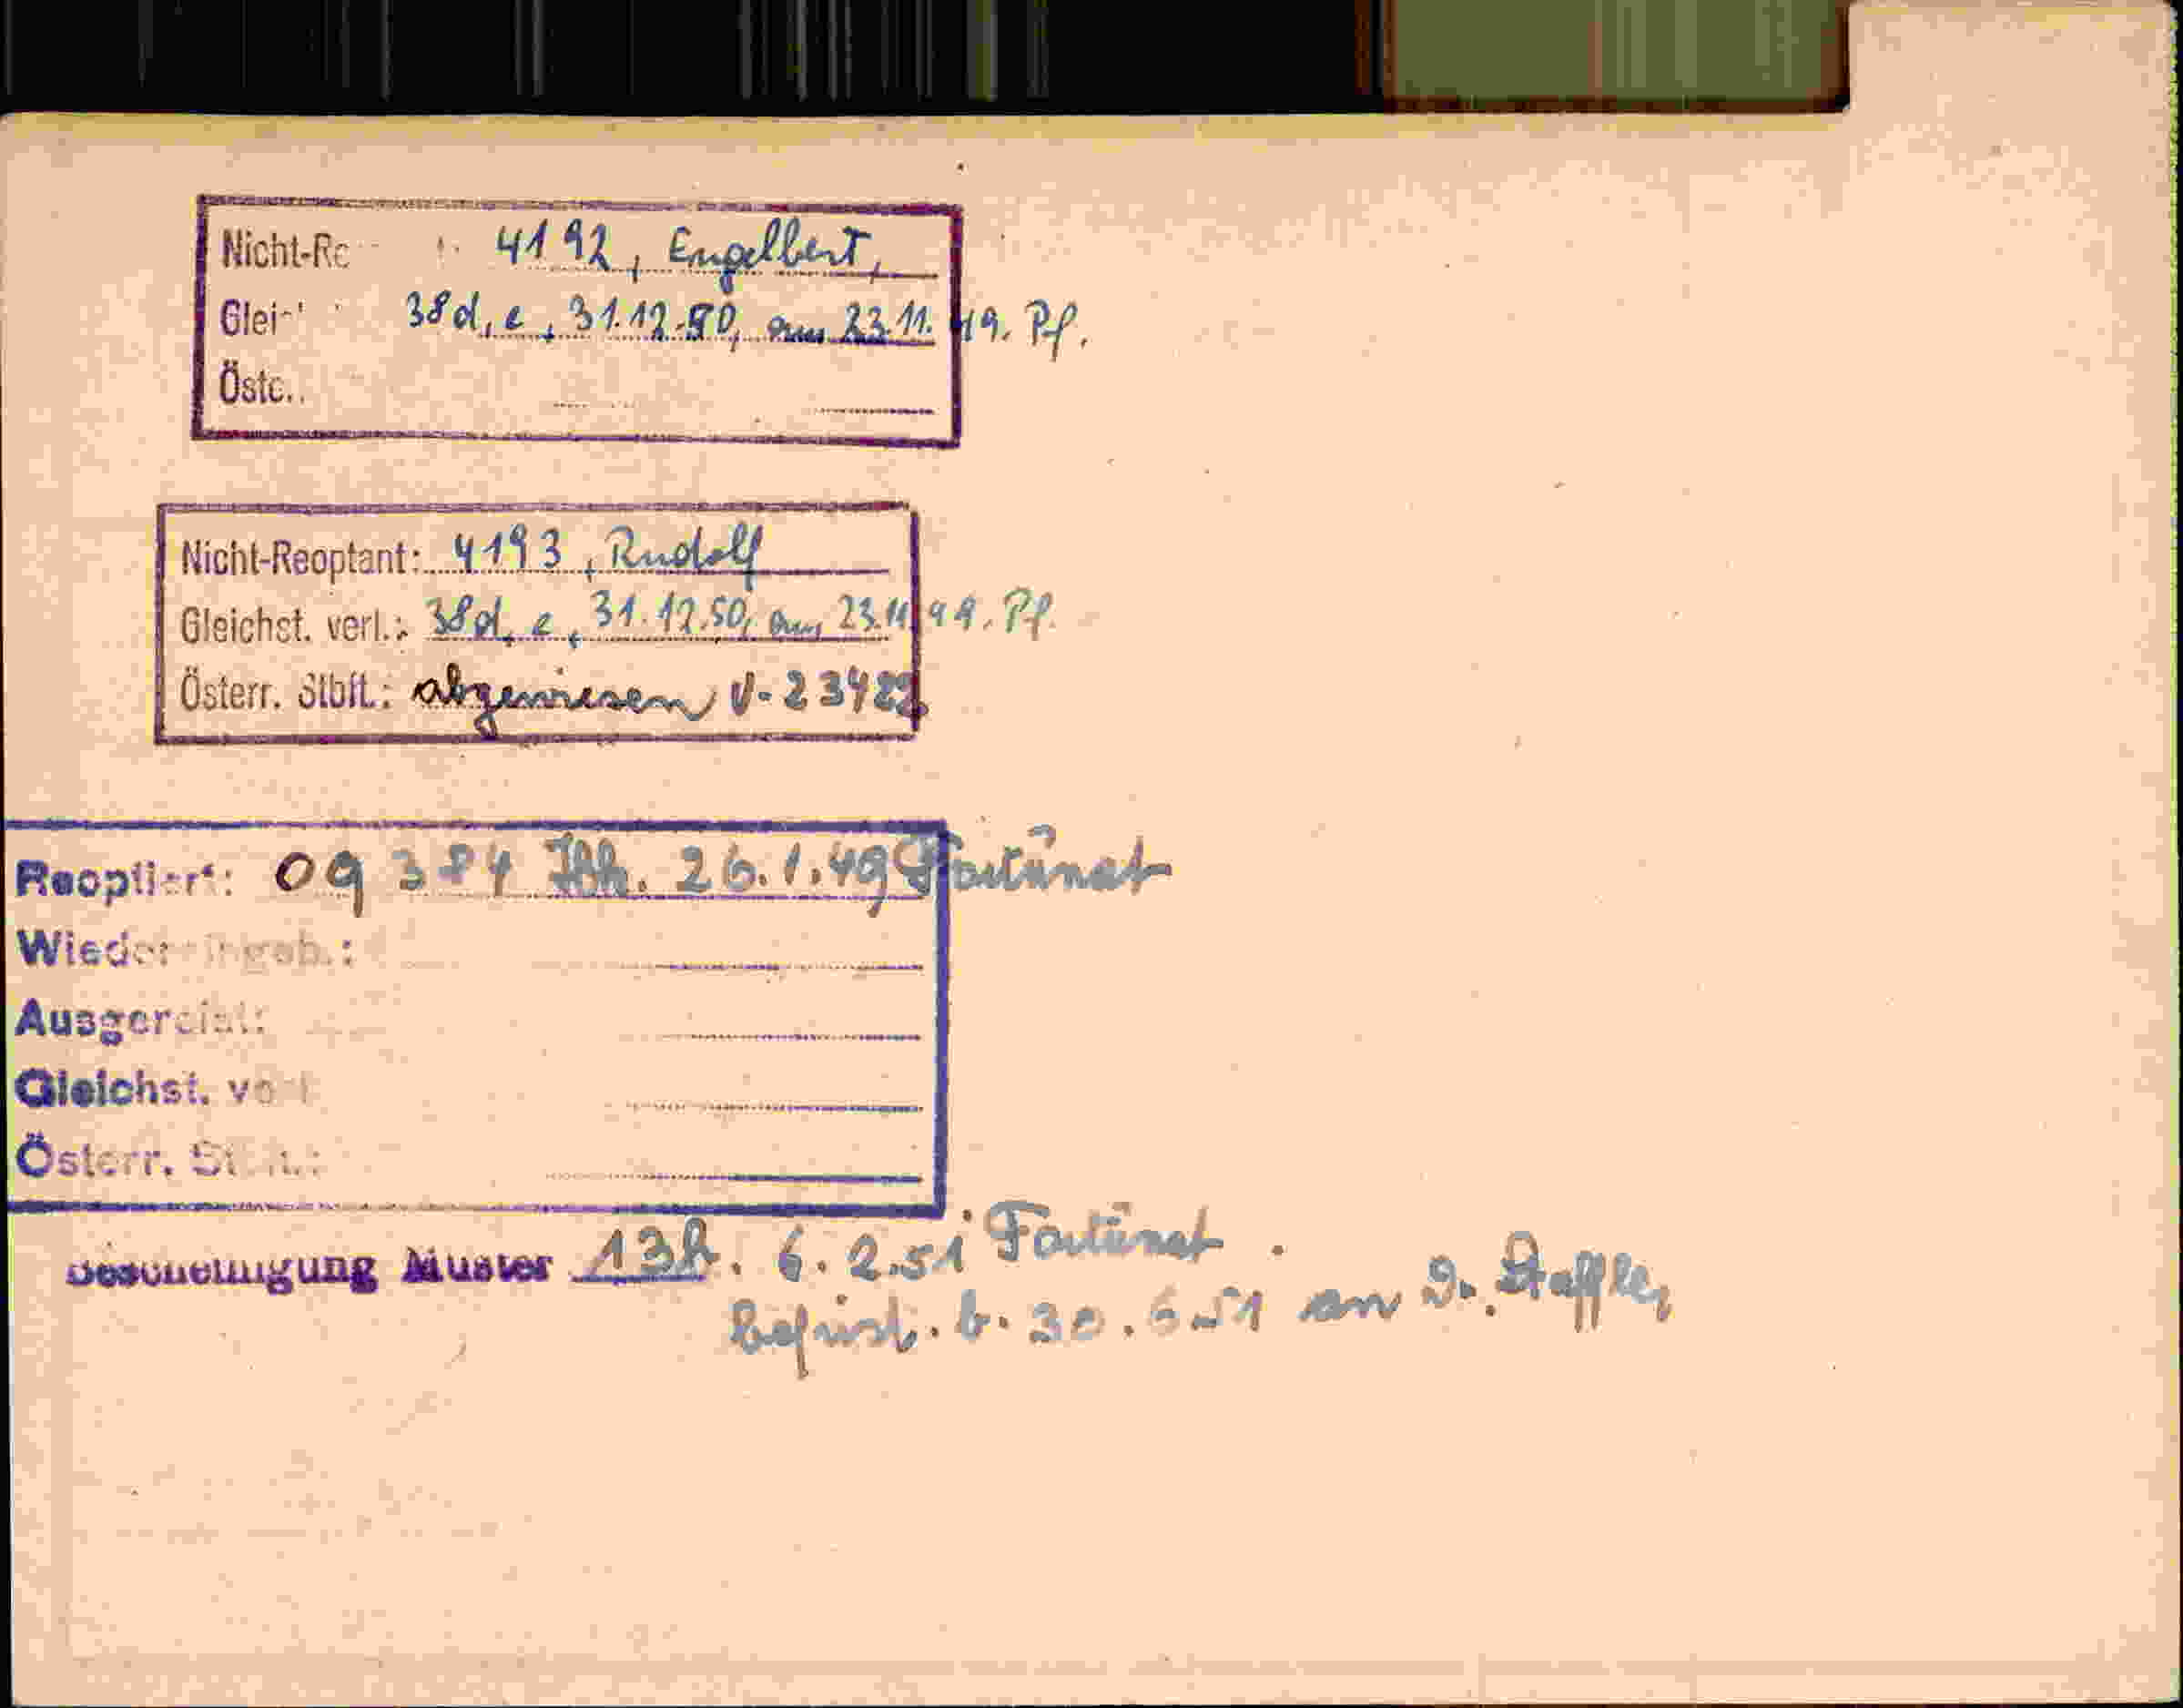 Nicht-Re 4192, Engelbert,
Glei 38d, e, 31.12.50, am 23.11.49. Pf.
Öste..
Nicht-Reoptant: 4193, Rudolf
Gleichst. verl.: 38d, e, 31.12.50, am 23.11.49. Pf.
Österr. Stbft.: abgewiesen V-23422
Reoptiert: 09384 Ibk. 26.1.49 Fortünat
Wiedereingeb.:
Ausgereist:
Gleichst. verl
Österr. St
Bescheinigung Muster 13h. 6.2.51 Fortünat.
befrist. b. 30.6.51 an Dr. Staffler